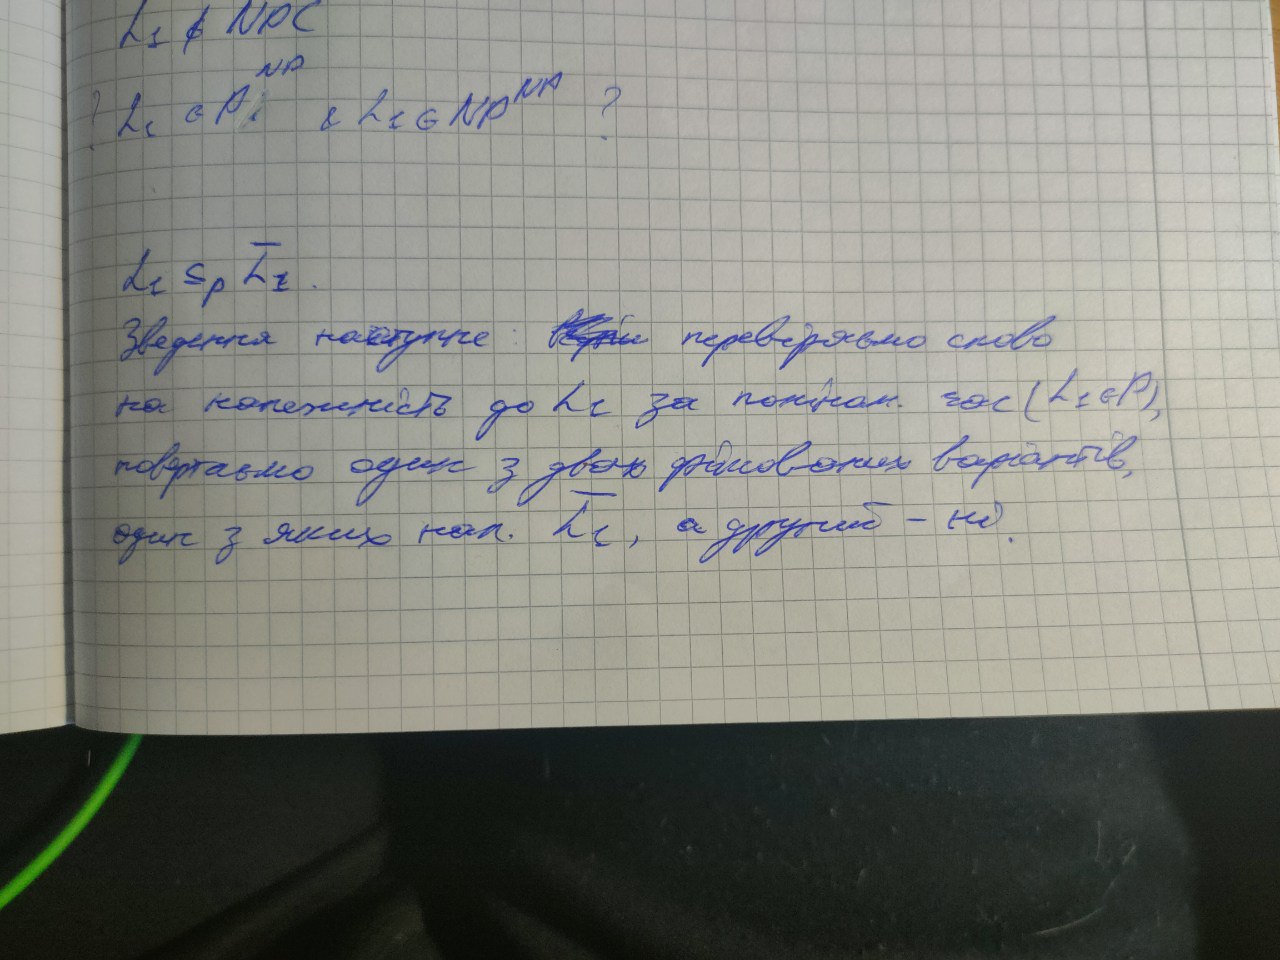 L₁ ∉ NPC
? L₁ ∈ P^NP & L₁ ∈ NP^NP ?
L₁ ≤p L̅₁.
Зведення наступне: перевіряємо слово
на належність до L₁ за поліном. час (L₁ ∈ P),
повертаємо один з двох фіксованих варіантів,
один з яких нал. L̅₁, а другий – ні.